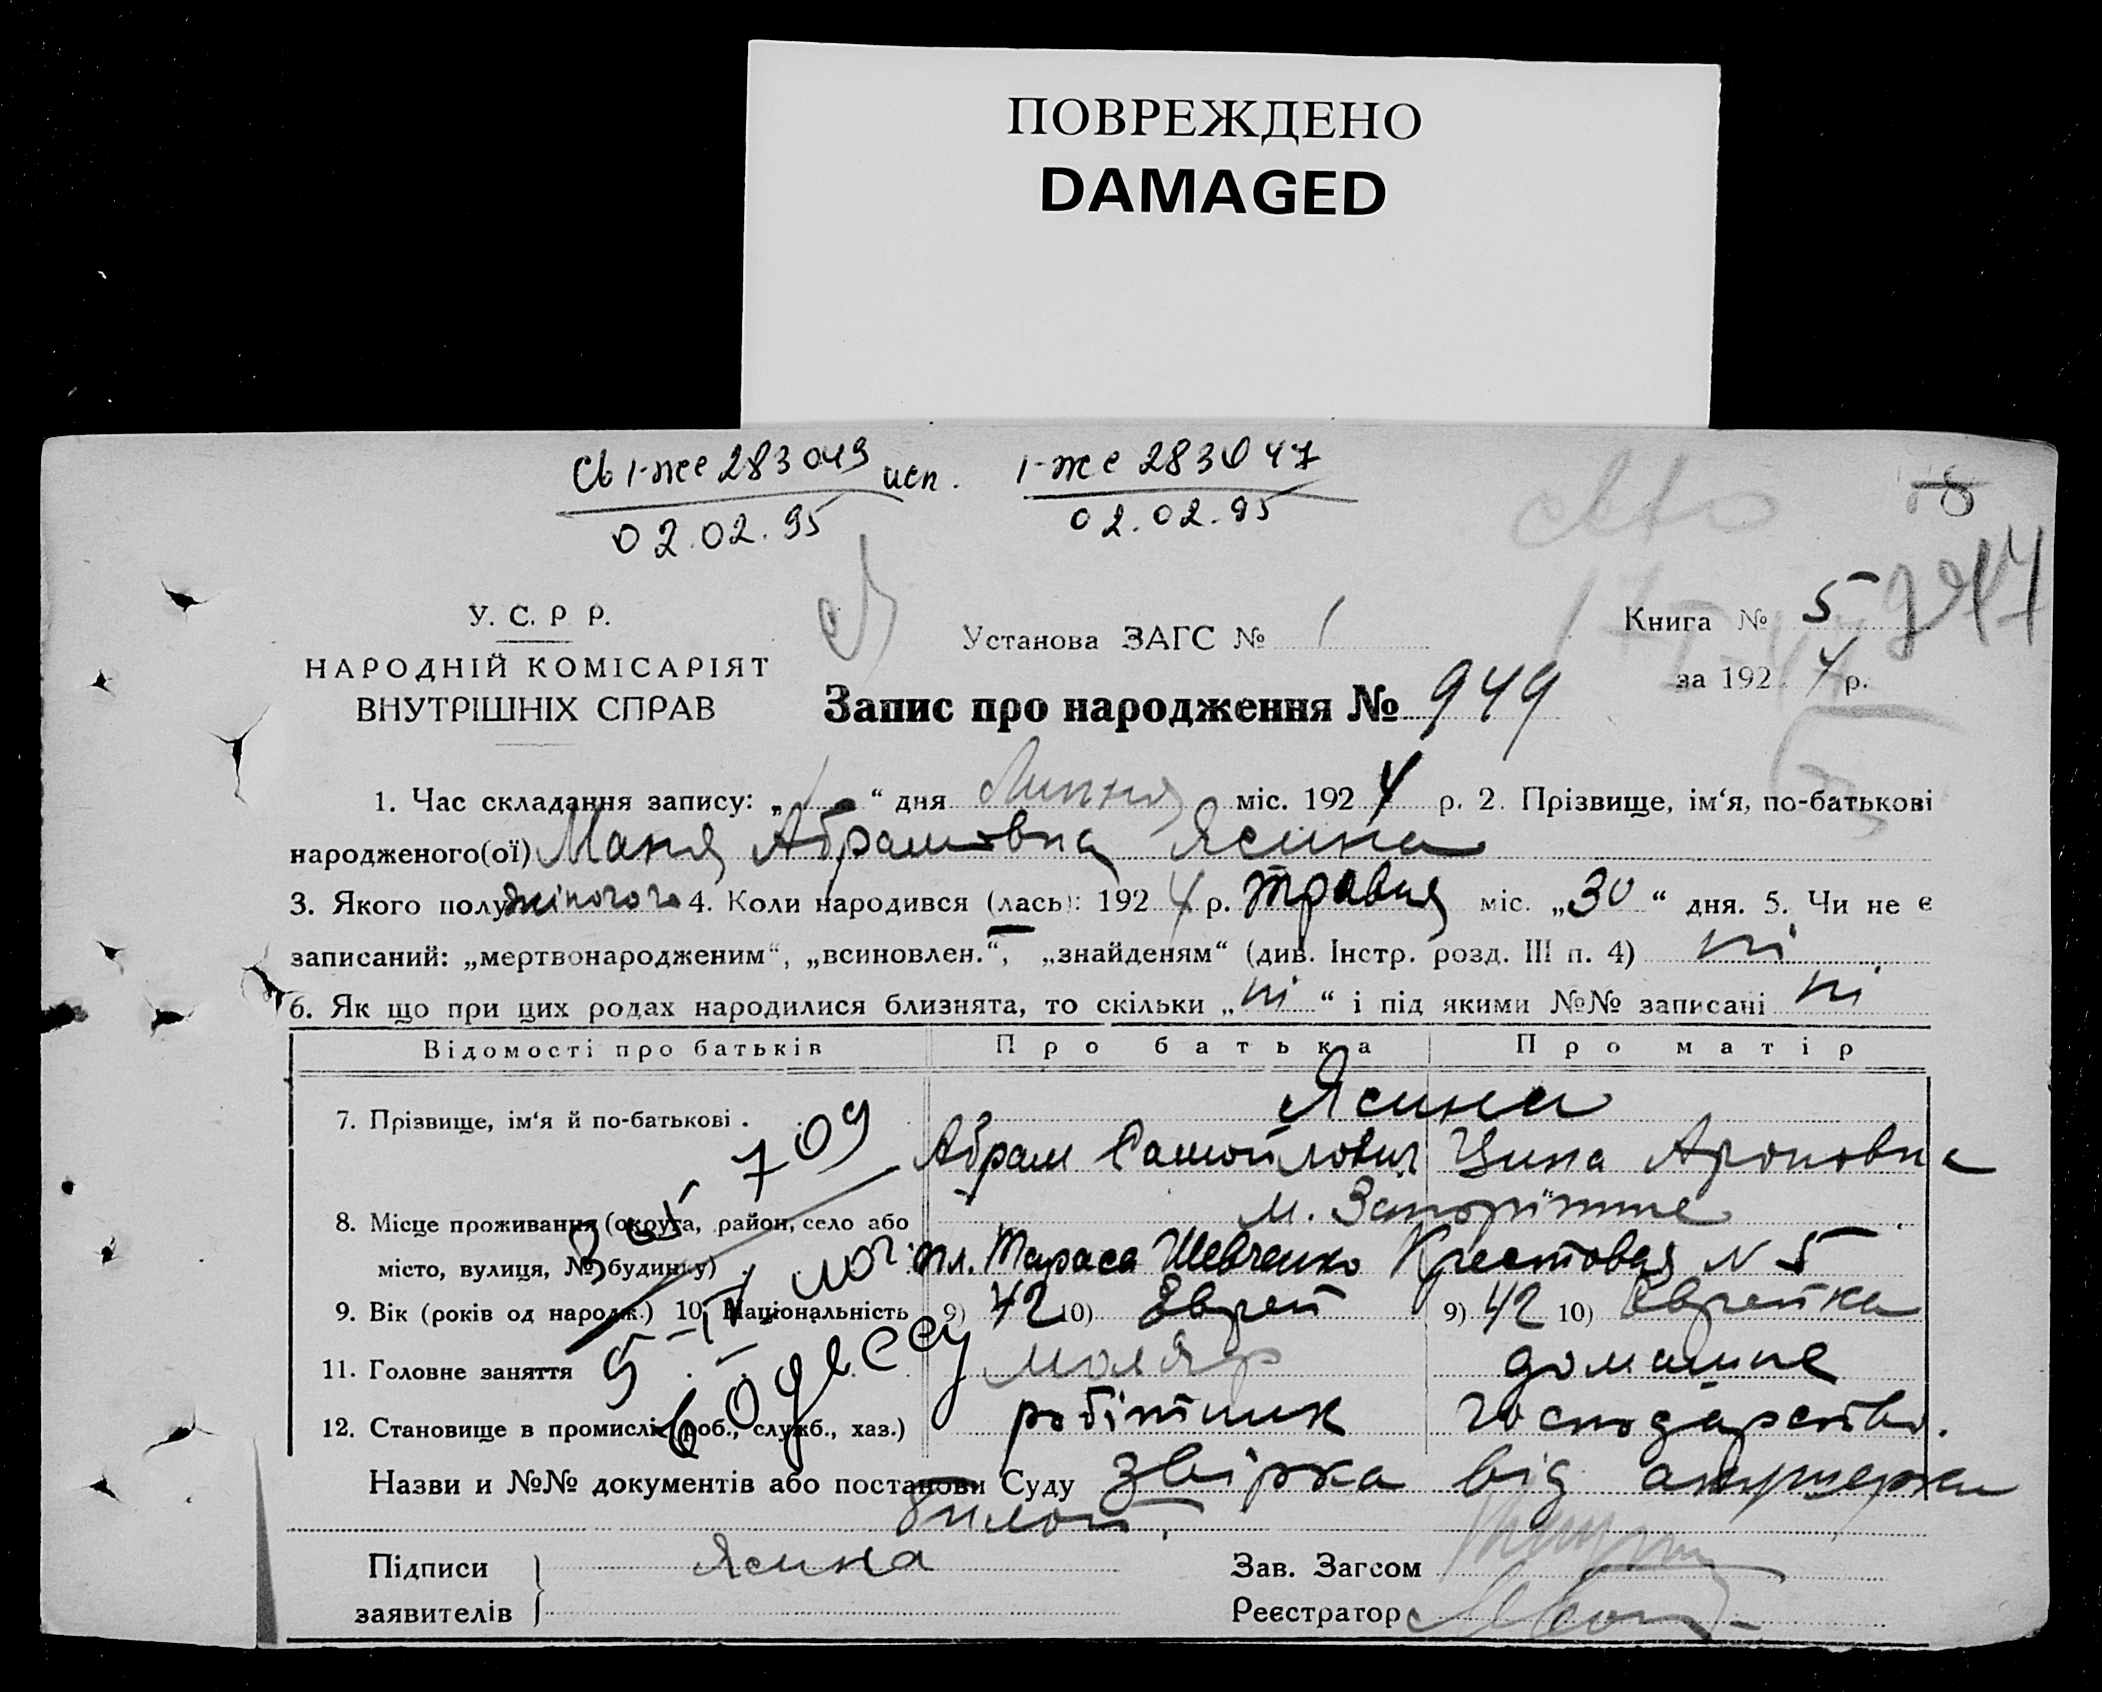 ПОВРЕЖДЕНО
DAMAGED
Св 1-же 283049 исп. 1-же 283047
02.02.95 02.02.95
У. С. Р Р.
НАРОДНІЙ КОМІСАРІЯТ
ВНУТРІШНІХ СПРАВ
Установа ЗАГС № 1
Книга № 5
за 1924 р.
Запис про народження № 949
1. Час складання запису: „ “ дня Липня міс. 1924 р. 2. Прізвище, ім‘я, по-батькові
народженого(ої) Маня Абрамовна Ясина
3. Якого полу жіночого 4. Коли народився (лась): 1924 р. травня міс. „30“ дня. 5. Чи не є
записаний: „мертвонародженим“, „всиновлен.“, „знайденям“ (див. Інстр. розд. III п. 4) ні
6. Як що при цих родах народилися близнята, то скільки „ні“ і під якими №№ записані ні
Відомості про батьків Про батька Про матір
Ясини
7. Прізвище, ім‘я й по-батькові .
Абрам Самойлович Цина Ароновна
709
м. Запоріжже
8. Місце проживання (округа, район, село або
місто, вулиця, № будинку) . пл. Тараса Шевченко Крестовая N 5
9. Вік (років од народж.) 10. Національність 9) 42 10) Еврей 9) 42 10) Еврейка
в Одессу
11. Головне заняття маляр домашне
12. Становище в промислі (роб., служб., хаз.) робітник господарство.
Назви и №№ документів або постанови Суду звірка від акушерки
Підписи
заявителів
Ясина
Зав. Загсом
Реєстратор